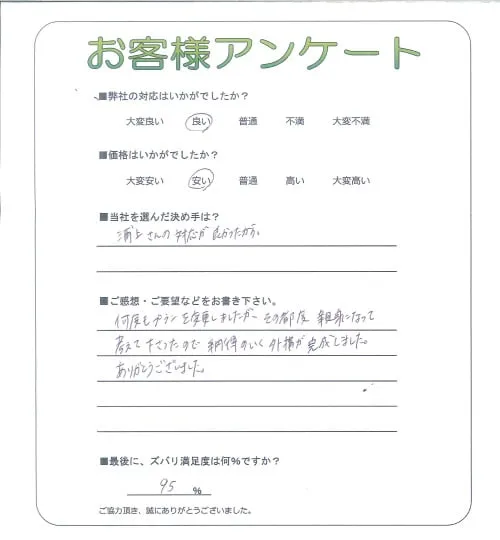 お客様アンケート
■弊社の対応はいかがでしたか？
大変良い 良い 普通 不満 大変不満
■価格はいかがでしたか？
大変安い 安い 普通 高い 大変高い
■当社を選んだ決め手は？
浦上さんの対応が良かったから。
■ご感想・ご要望などをお書き下さい。
何度もプランを変更しましたが、その都度 親身になって
考えて下さったので 納得のいく外構が完成しました。
ありがとうございました。
■最後に、ズバリ満足度は何％ですか？
95 %
ご協力頂き、誠にありがとうございました。